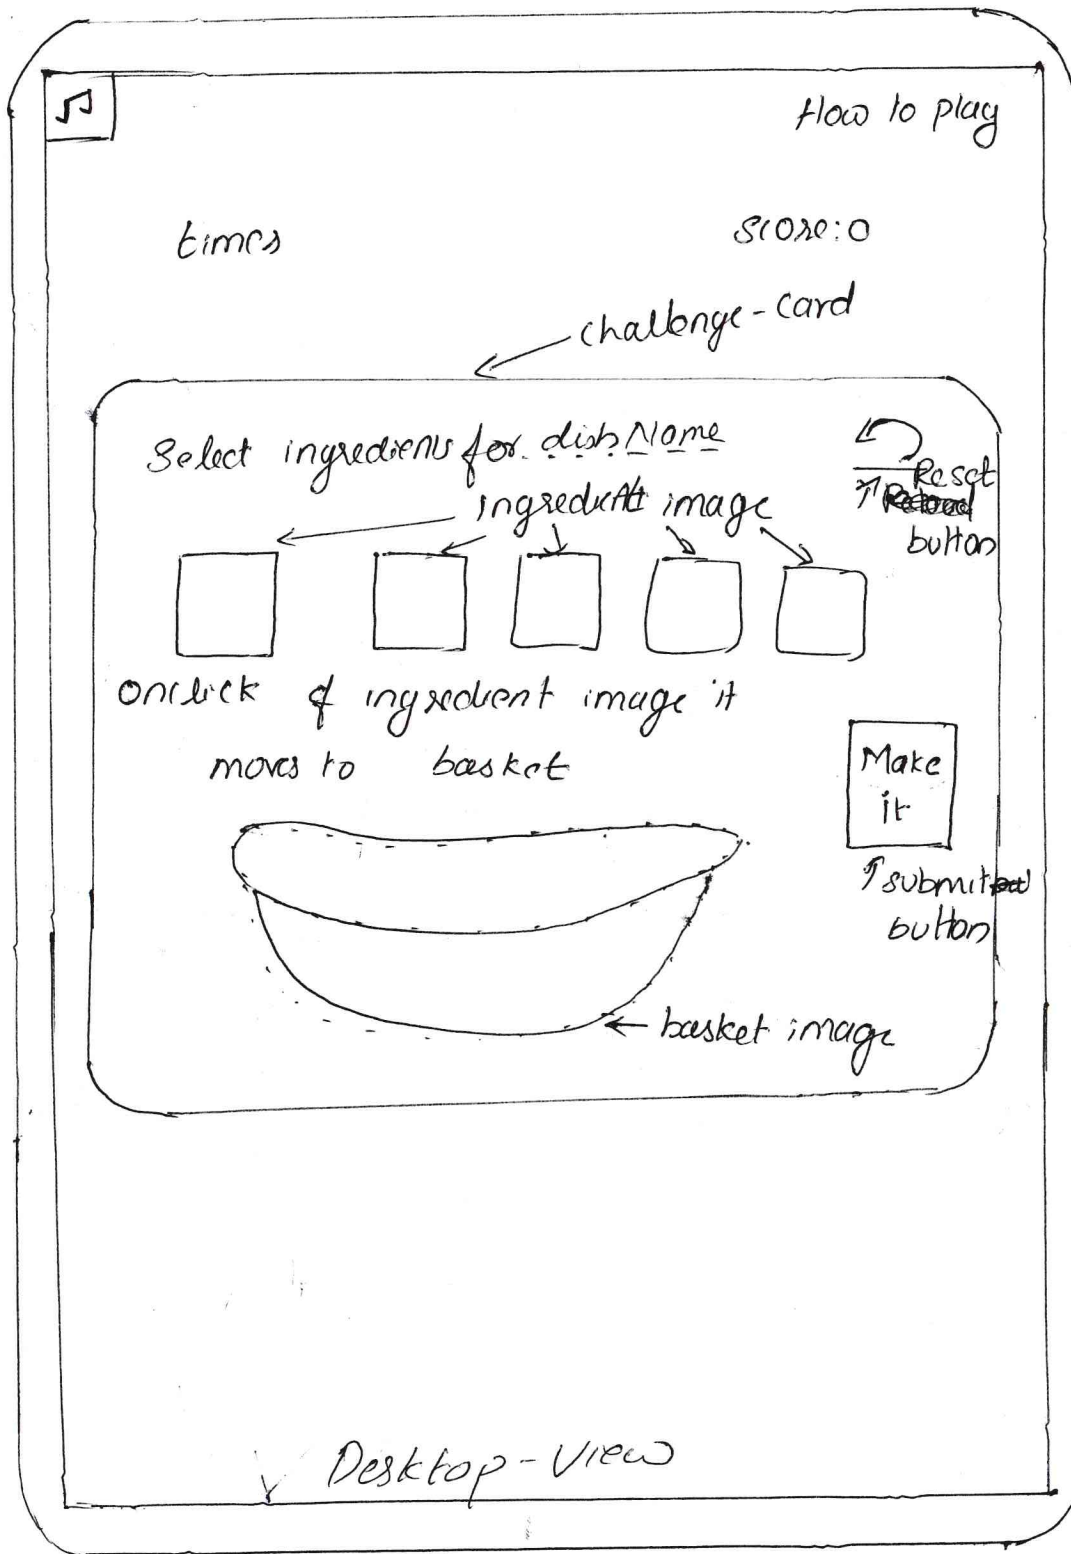 How to play
times
score:0
challenge-card
Select ingredients for dishName
Reset
ingredient image
button
onclick of ingredient image it
moves to basket
Make
it
submit
button
basket image
Desktop-View